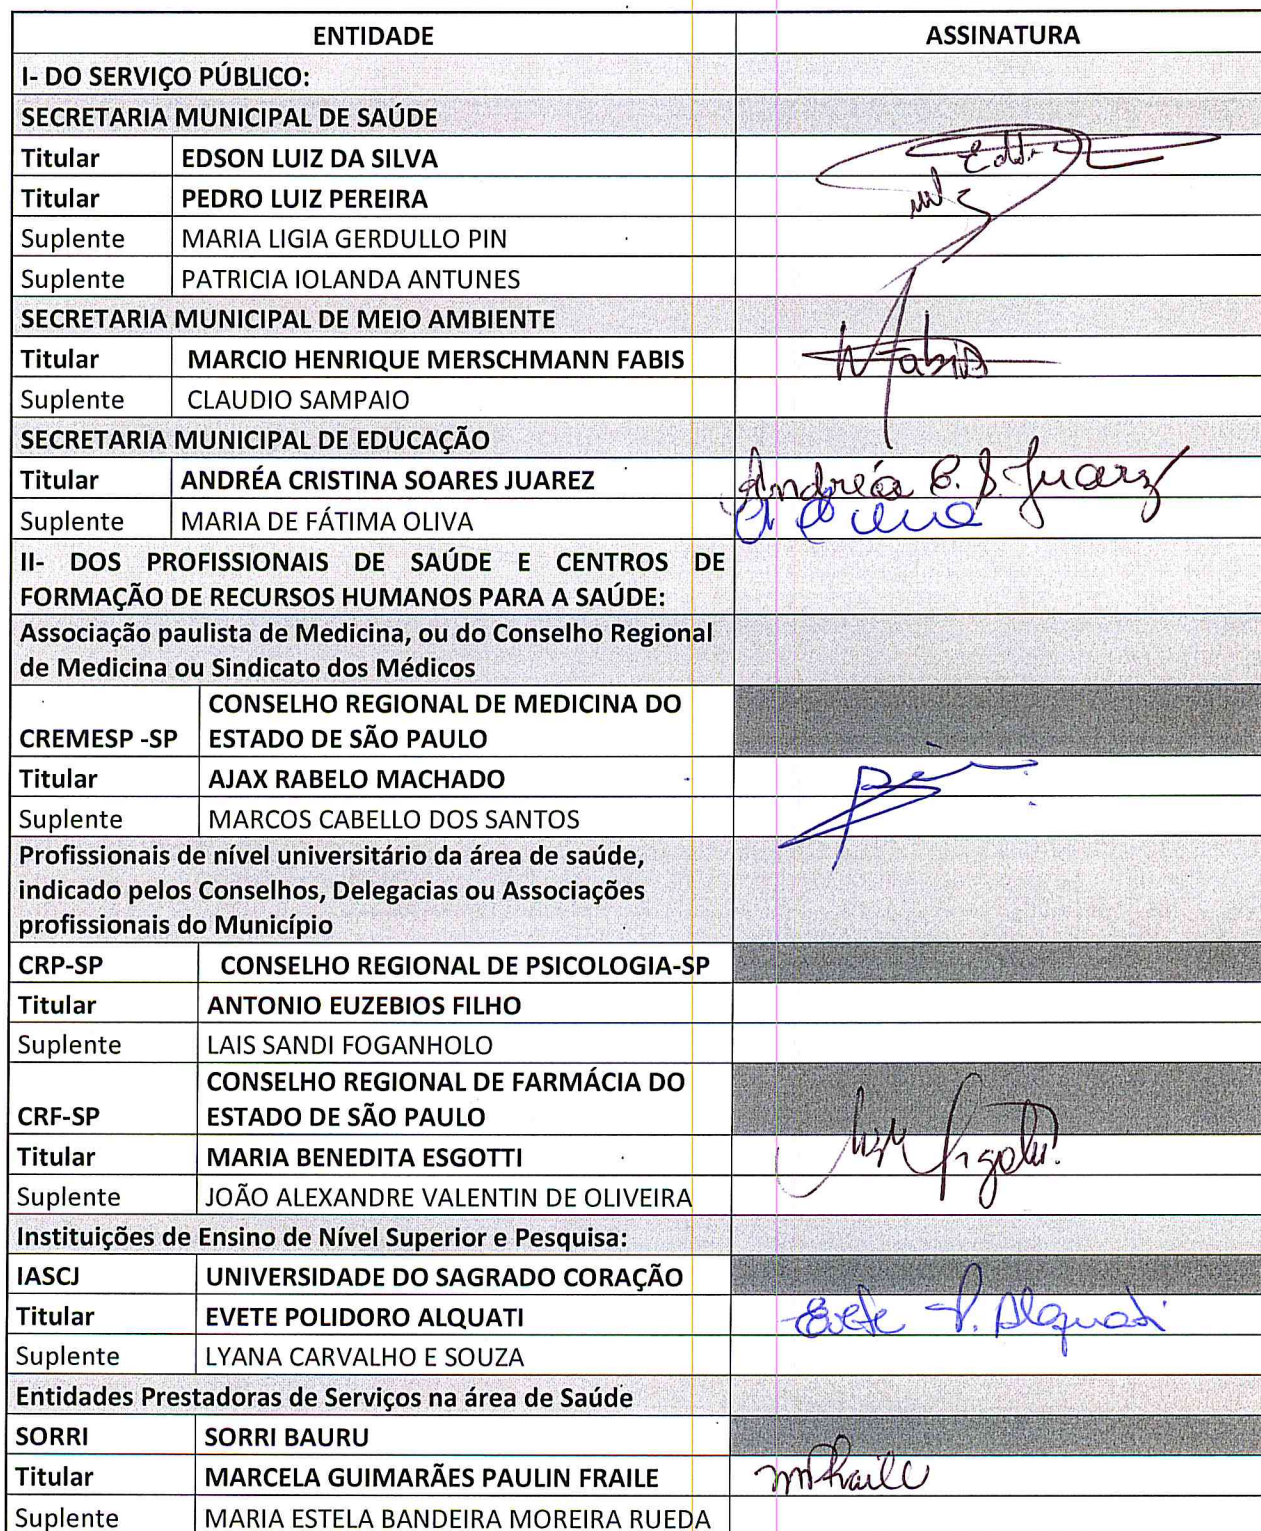 ENTIDADE ASSINATURA
I- DO SERVIÇO PÚBLICO:
SECRETARIA MUNICIPAL DE SAÚDE
Titular EDSON LUIZ DA SILVA Edson
Titular PEDRO LUIZ PEREIRA
Suplente MARIA LIGIA GERDULLO PIN
Suplente PATRICIA IOLANDA ANTUNES
SECRETARIA MUNICIPAL DE MEIO AMBIENTE
Titular MARCIO HENRIQUE MERSCHMANN FABIS Fabis
Suplente CLAUDIO SAMPAIO
SECRETARIA MUNICIPAL DE EDUCAÇÃO
Titular ANDRÉA CRISTINA SOARES JUAREZ Andréa C. S. Juarez
Suplente MARIA DE FÁTIMA OLIVA
II- DOS PROFISSIONAIS DE SAÚDE E CENTROS DE
FORMAÇÃO DE RECURSOS HUMANOS PARA A SAÚDE:
Associação paulista de Medicina, ou do Conselho Regional
de Medicina ou Sindicato dos Médicos
CONSELHO REGIONAL DE MEDICINA DO
CREMESP -SP ESTADO DE SÃO PAULO
Titular AJAX RABELO MACHADO
Suplente MARCOS CABELLO DOS SANTOS
Profissionais de nível universitário da área de saúde,
indicado pelos Conselhos, Delegacias ou Associações
profissionais do Município
CRP-SP CONSELHO REGIONAL DE PSICOLOGIA-SP
Titular ANTONIO EUZEBIOS FILHO
Suplente LAIS SANDI FOGANHOLO
CONSELHO REGIONAL DE FARMÁCIA DO
CRF-SP ESTADO DE SÃO PAULO
Titular MARIA BENEDITA ESGOTTI
Suplente JOÃO ALEXANDRE VALENTIN DE OLIVEIRA
Instituições de Ensino de Nível Superior e Pesquisa:
IASCJ UNIVERSIDADE DO SAGRADO CORAÇÃO
Titular EVETE POLIDORO ALQUATI Evete P. Alquati
Suplente LYANA CARVALHO E SOUZA
Entidades Prestadoras de Serviços na área de Saúde
SORRI SORRI BAURU
Titular MARCELA GUIMARÃES PAULIN FRAILE
Suplente MARIA ESTELA BANDEIRA MOREIRA RUEDA